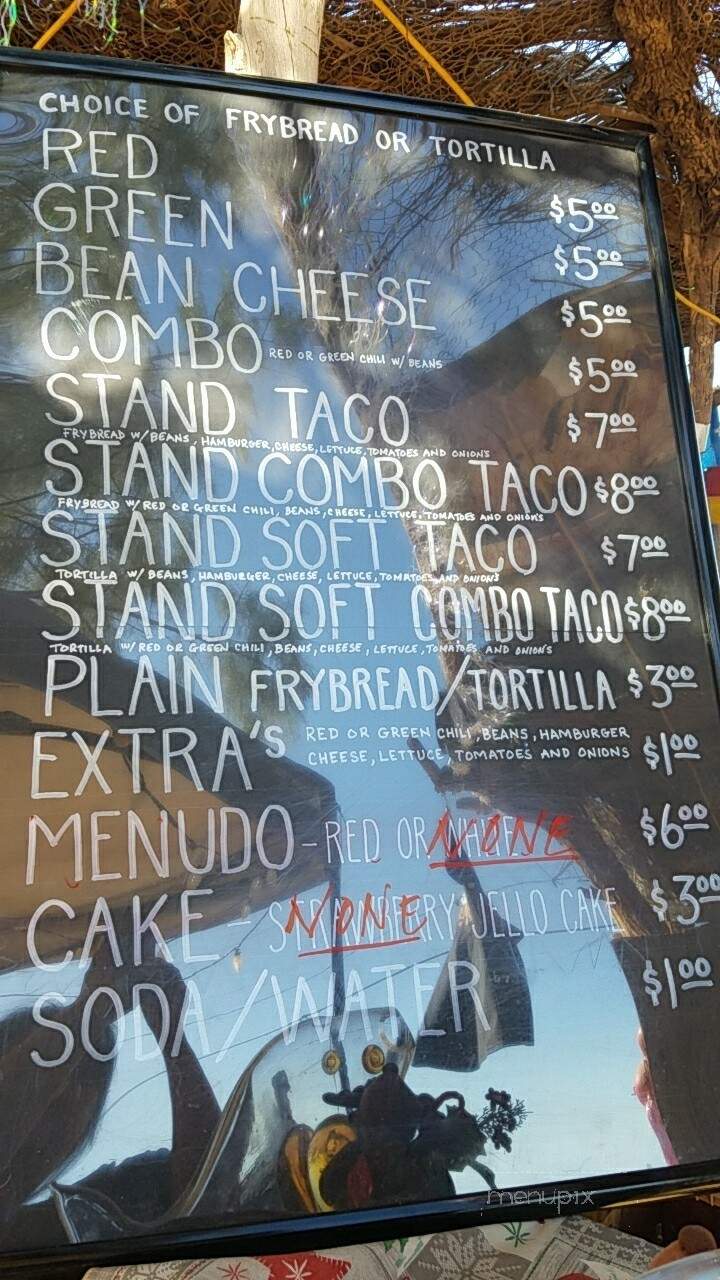 CHOICE OF FRYBREAD OR TORTILLA
RED $5.00
GREEN $5.00
BEAN CHEESE $5.00
COMBO RED OR GREEN CHILI W/ BEANS $5.00
STAND TACO $7.00
FRYBREAD W/BEANS, HAMBURGER, CHEESE, LETTUCE, TOMATOES AND ONIONS
STAND COMBO TACO $8.00
FRYBREAD W/ RED OR GREEN CHILI, BEANS, CHEESE, LETTUCE, TOMATOES AND ONIONS
STAND SOFT TACO $7.00
TORTILLA W/ BEANS, HAMBURGER, CHEESE, LETTUCE, TOMATOES AND ONIONS
STAND SOFT COMBO TACO $8.00
TORTILLA W/ RED OR GREEN CHILI, BEANS, CHEESE, LETTUCE, TOMATOES AND ONIONS
PLAIN FRYBREAD/TORTILLA $3.00
EXTRA'S RED OR GREEN CHILI, BEANS, HAMBURGER
CHEESE, LETTUCE, TOMATOES AND ONIONS $1.00
MENUDO - RED OR NONE $6.00
CAKE - STRAWBERRY JELLO CAKE NONE $3.00
SODA/WATER $1.00
menupix